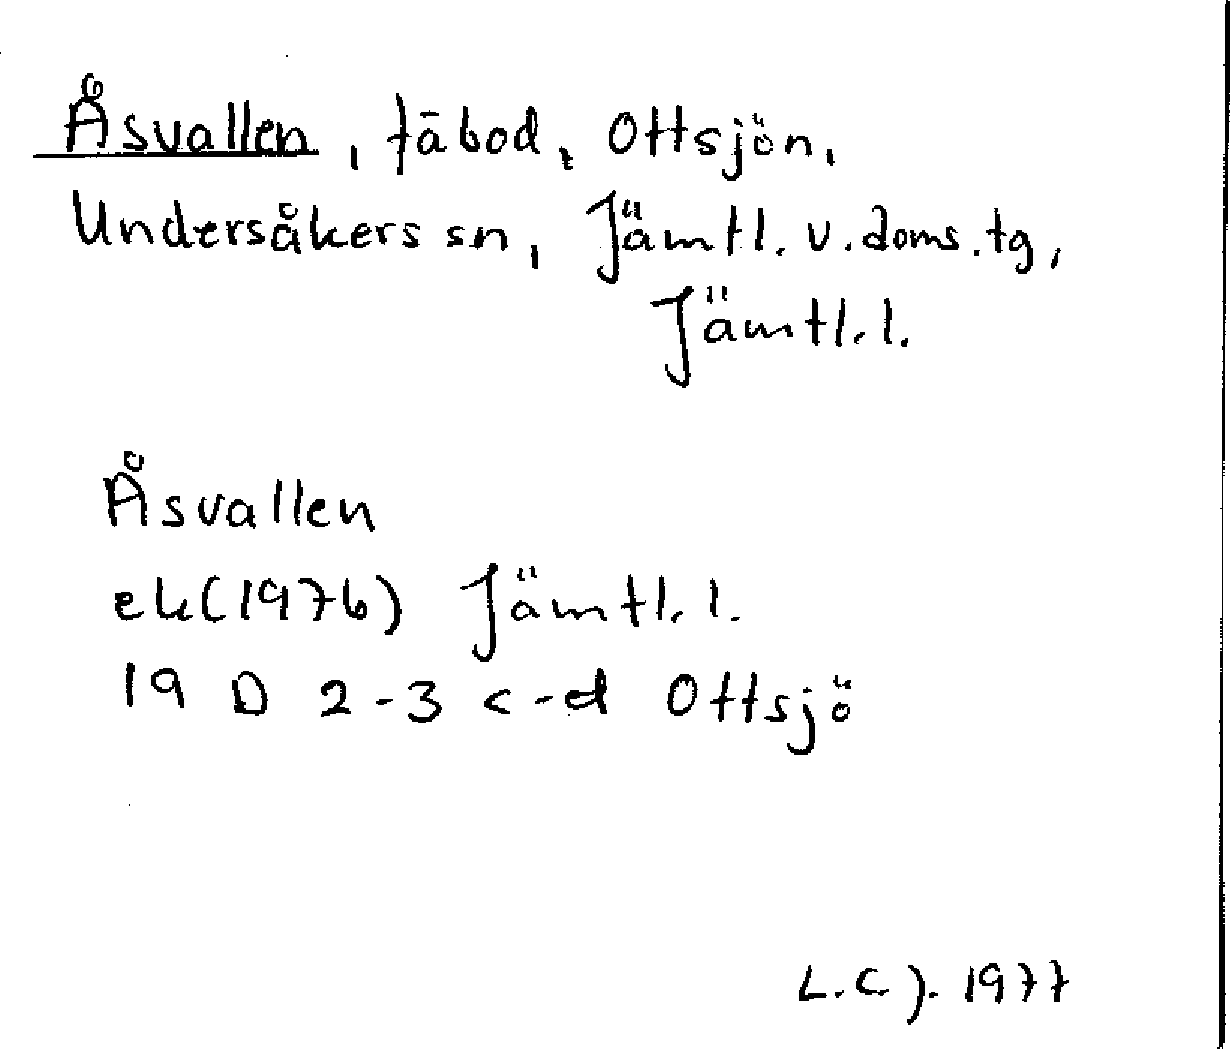 Åsvallen, fäbod, Ottsjön,
Undersåkers sn, Jämtl. v. doms. tg,
Jämtl. l.
Åsvallen
ek (1976) Jämtl. l.
19 D 2-3 c-d Ottsjö
L.C.J. 1977